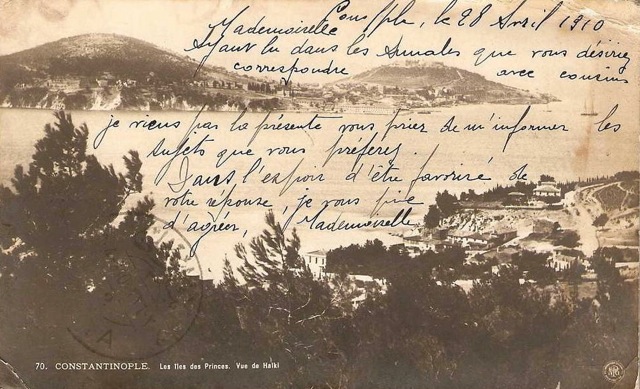 Consple, le 28 Avril 1910
Mademoiselle
Ayant lu dans les Annales que vous désiriez
correspondre avec cousins
je viens par la présente vous prier de m'informer les
sujets que vous préferez.
Dans l'espoir d'être favorisé de
votre réponse, je vous prie
d'agréer, Mademoiselle,
70. CONSTANTINOPLE. Les Iles des Princes. Vue de Halki